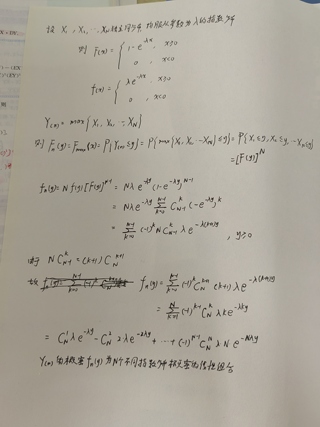 设 X₁, X₂, …, X_N 独立同分布 均服从参数为 λ 的指数分布
则 F(x) = { 1-e^{-λx}, x>0
0, x<0
f(x) = { λe^{-λx}, x>0
0, x<0
Y(n) = max{X₁, X₂, … X_N}
则 F_n(y) = F_max(x) = P{Y(n) ≤ y} = P{max{X₁, X₂, … X_N} ≤ y} = P{X₁≤y, X₂≤y, … X_N≤y}
= [F(y)]^N
f_n(y) = N f(y) [F(y)]^{N-1} = Nλe^{-λy} (1-e^{-λy})^{N-1}
= Nλe^{-λy} Σ_{k=0}^{N-1} C_{N-1}^k (-e^{-λy})^k
= Σ_{k=0}^{N-1} (-1)^k N C_{N-1}^k λe^{-λ(k+1)y}, y≥0
由 N C_{N-1}^k = (k+1) C_N^{k+1}
故 f_n(y) = Σ_{k=0}^{N-1} (-1)^k C_N^{k+1} (k+1) λe^{-λ(k+1)y}
= Σ_{k=1}^{N} (-1)^{k-1} C_N^k λk e^{-λky}
= C_N^1 λe^{-λy} - C_N^2 2λe^{-2λy} + … + (-1)^{N-1} C_N^N λN e^{-Nλy}
Y(n) 的概率 f_n(y) 为N个不同指数分布 概率密度线性组合